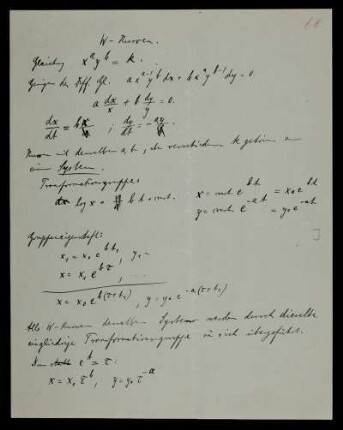 W-Kurven.
Gleichung x^a y^b = k.
Genügen der Diff. Gl. a x^{a-1} y^b dx + b x^a y^{b-1} dy = 0
a dx/x + b dy/y = 0.
dx/dt = bx ; dy/dt = -ay
Kurven mit denselben a, b, aber verschiedenen k gehören zu
einem System.
Transformationsgruppe:
log x = b t + const. x = const e^{bt} = x₀ e^{bt}
y = const e^{-at} = y₀ e^{-at}
Gruppeneigenschaft:
x₁ = x₀ e^{bt₁}, y₁ =
x = x₁ e^{bτ}, ...
x = x₀ e^{b(τ+t₁)}, y = y₀ e^{-a(τ+t₁)}
Alle W-Kurven desselben Systems werden durch dieselbe
eingliedrige Transformationsgruppe in sich übergeführt.
e^t = τ:
x = x₀ τ^b, y = y₀ τ^{-a}